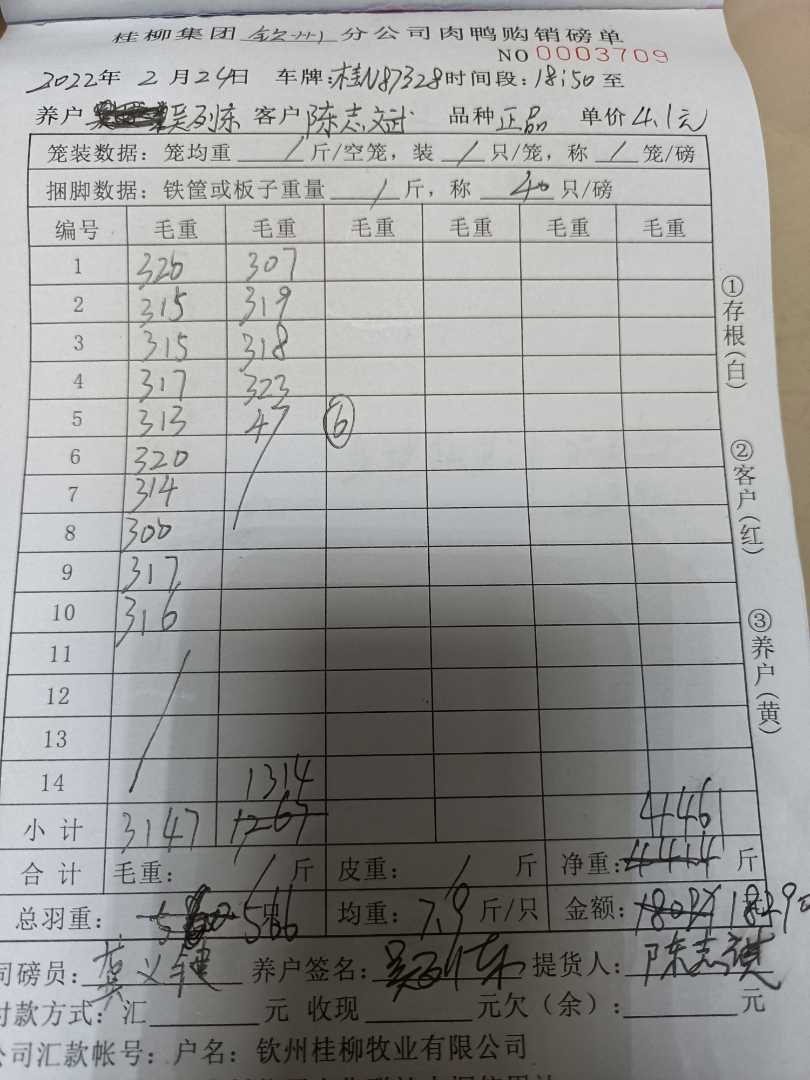 桂柳集团钦州分公司肉鸭购销磅单
NO 0003709
2022年 2月24日 车牌:桂N87328时间段:18:50至
养户 吴列东 客户 陈志斌 品种 正品 单价 4.1元
笼装数据:笼均重 / 斤/空笼,装 / 只/笼,称 / 笼/磅
捆脚数据:铁筐或板子重量 / 斤,称 40 只/磅
编号 毛重 毛重 毛重 毛重 毛重 毛重
1 320 307
2 315 319
3 315 318
4 317 323
5 313 47 ⑥
6 320
7 314
8 300
9 317
10 316
11
12
13
14 1314
小计 3147 1267 4461
合计 毛重: / 斤 皮重: / 斤 净重:4414 斤
总羽重: 560 566 只 均重:7.9斤/只 金额:18097 18290元
司磅员: 养户签名: 提货人:陈志
付款方式:汇 元 收现 元欠(余): 元
公司汇款帐号:户名:钦州桂柳牧业有限公司
①存根(白)
②客户(红)
③养户(黄)